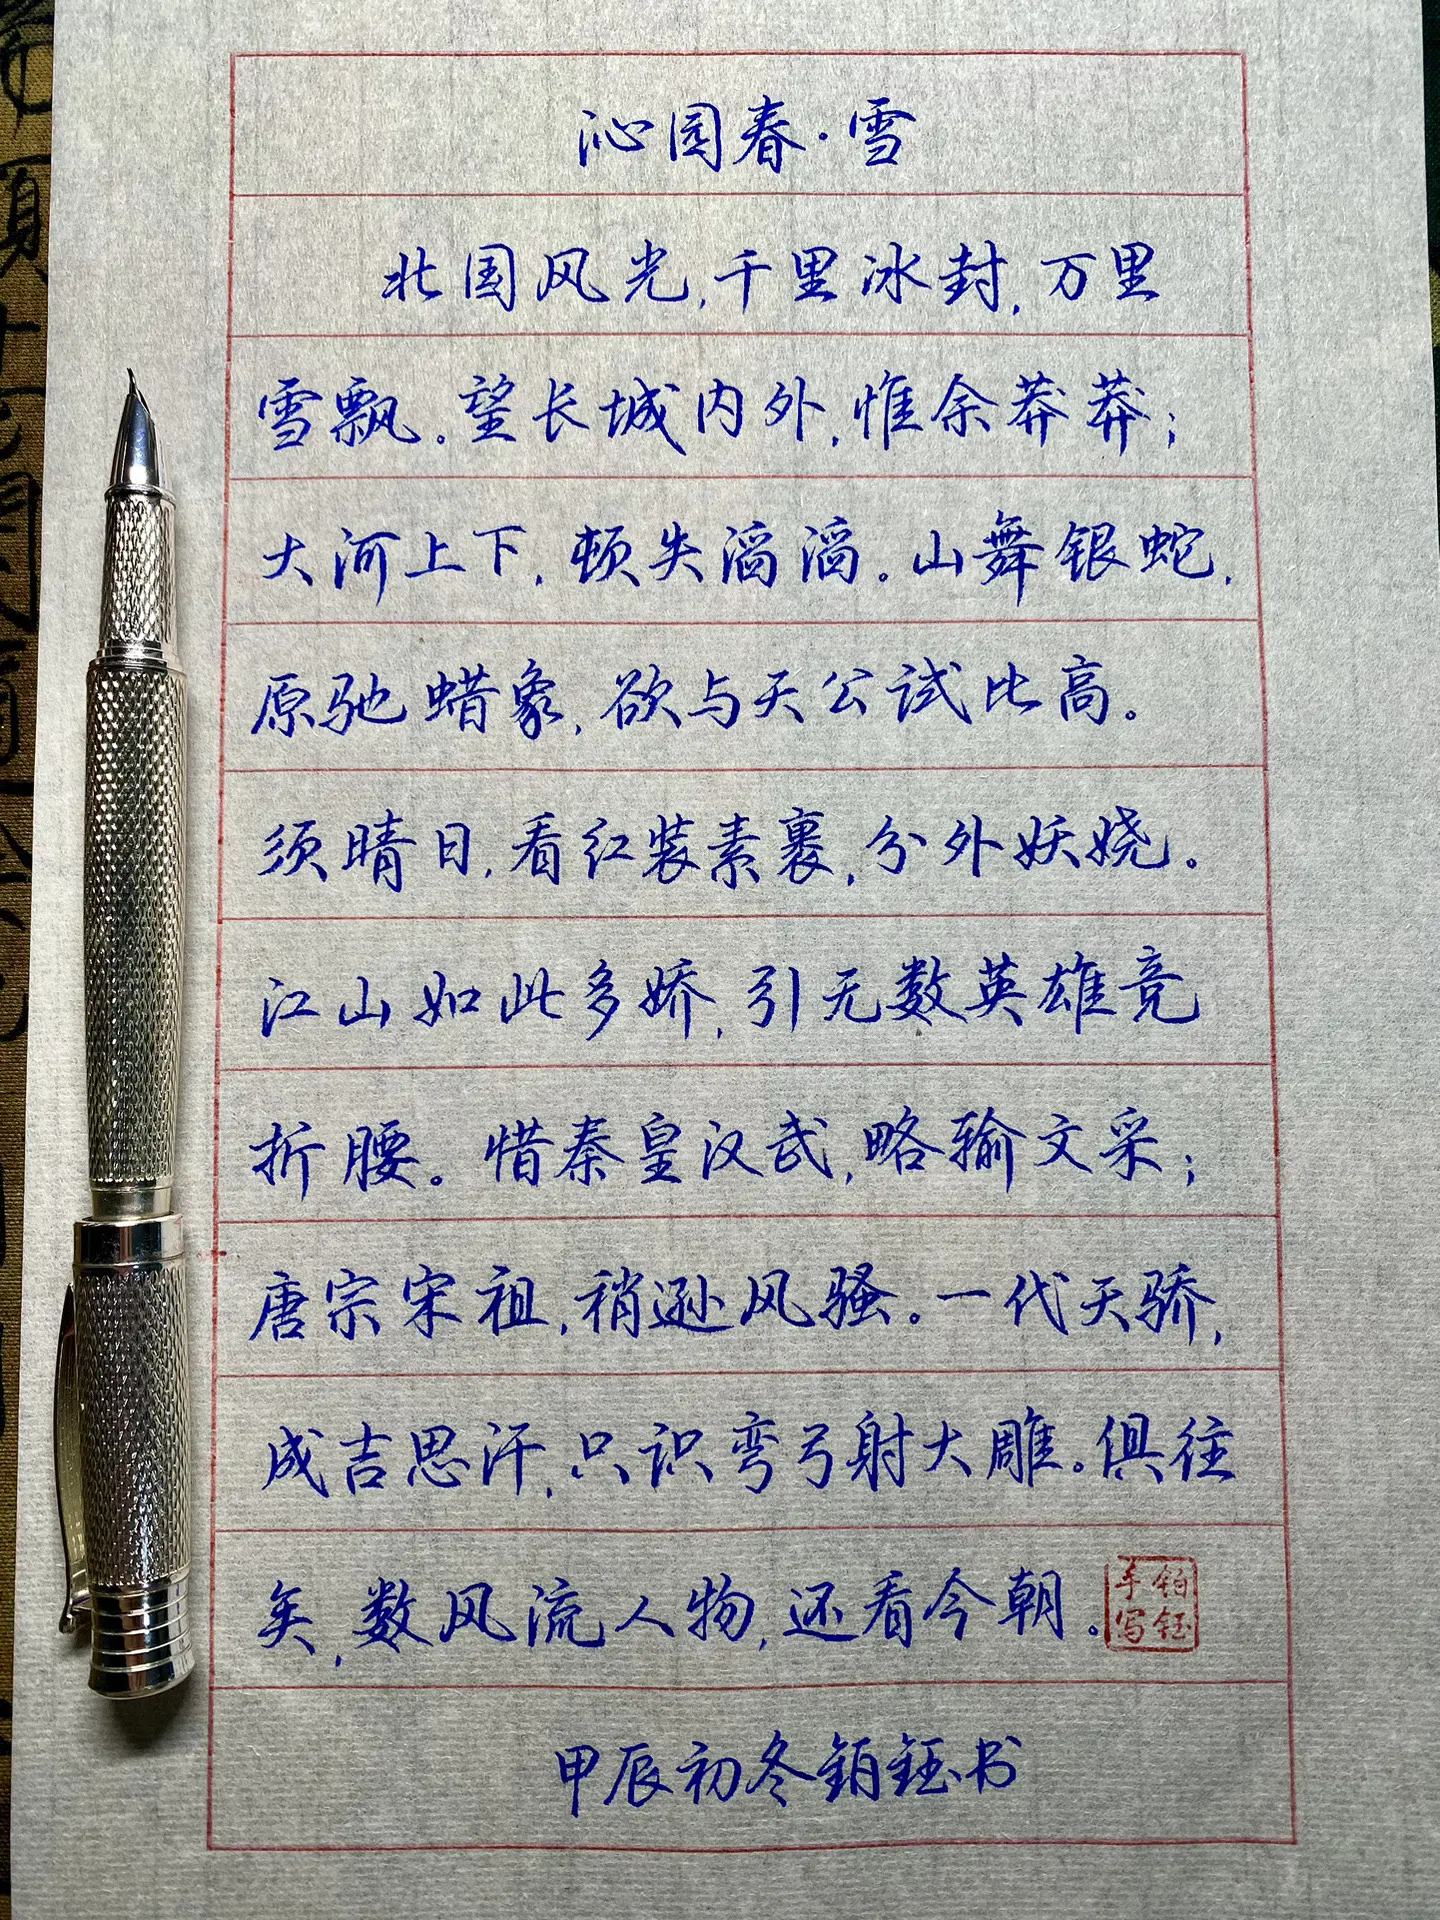 沁园春·雪
北国风光,千里冰封,万里
雪飘。望长城内外,惟余莽莽;
大河上下,顿失滔滔。山舞银蛇,
原驰蜡象,欲与天公试比高。
须晴日,看红装素裹,分外妖娆。
江山如此多娇,引无数英雄竞
折腰。惜秦皇汉武,略输文采;
唐宗宋祖,稍逊风骚。一代天骄,
成吉思汗,只识弯弓射大雕。俱往
矣,数风流人物,还看今朝。
铂钰
手写
甲辰初冬铂钰书